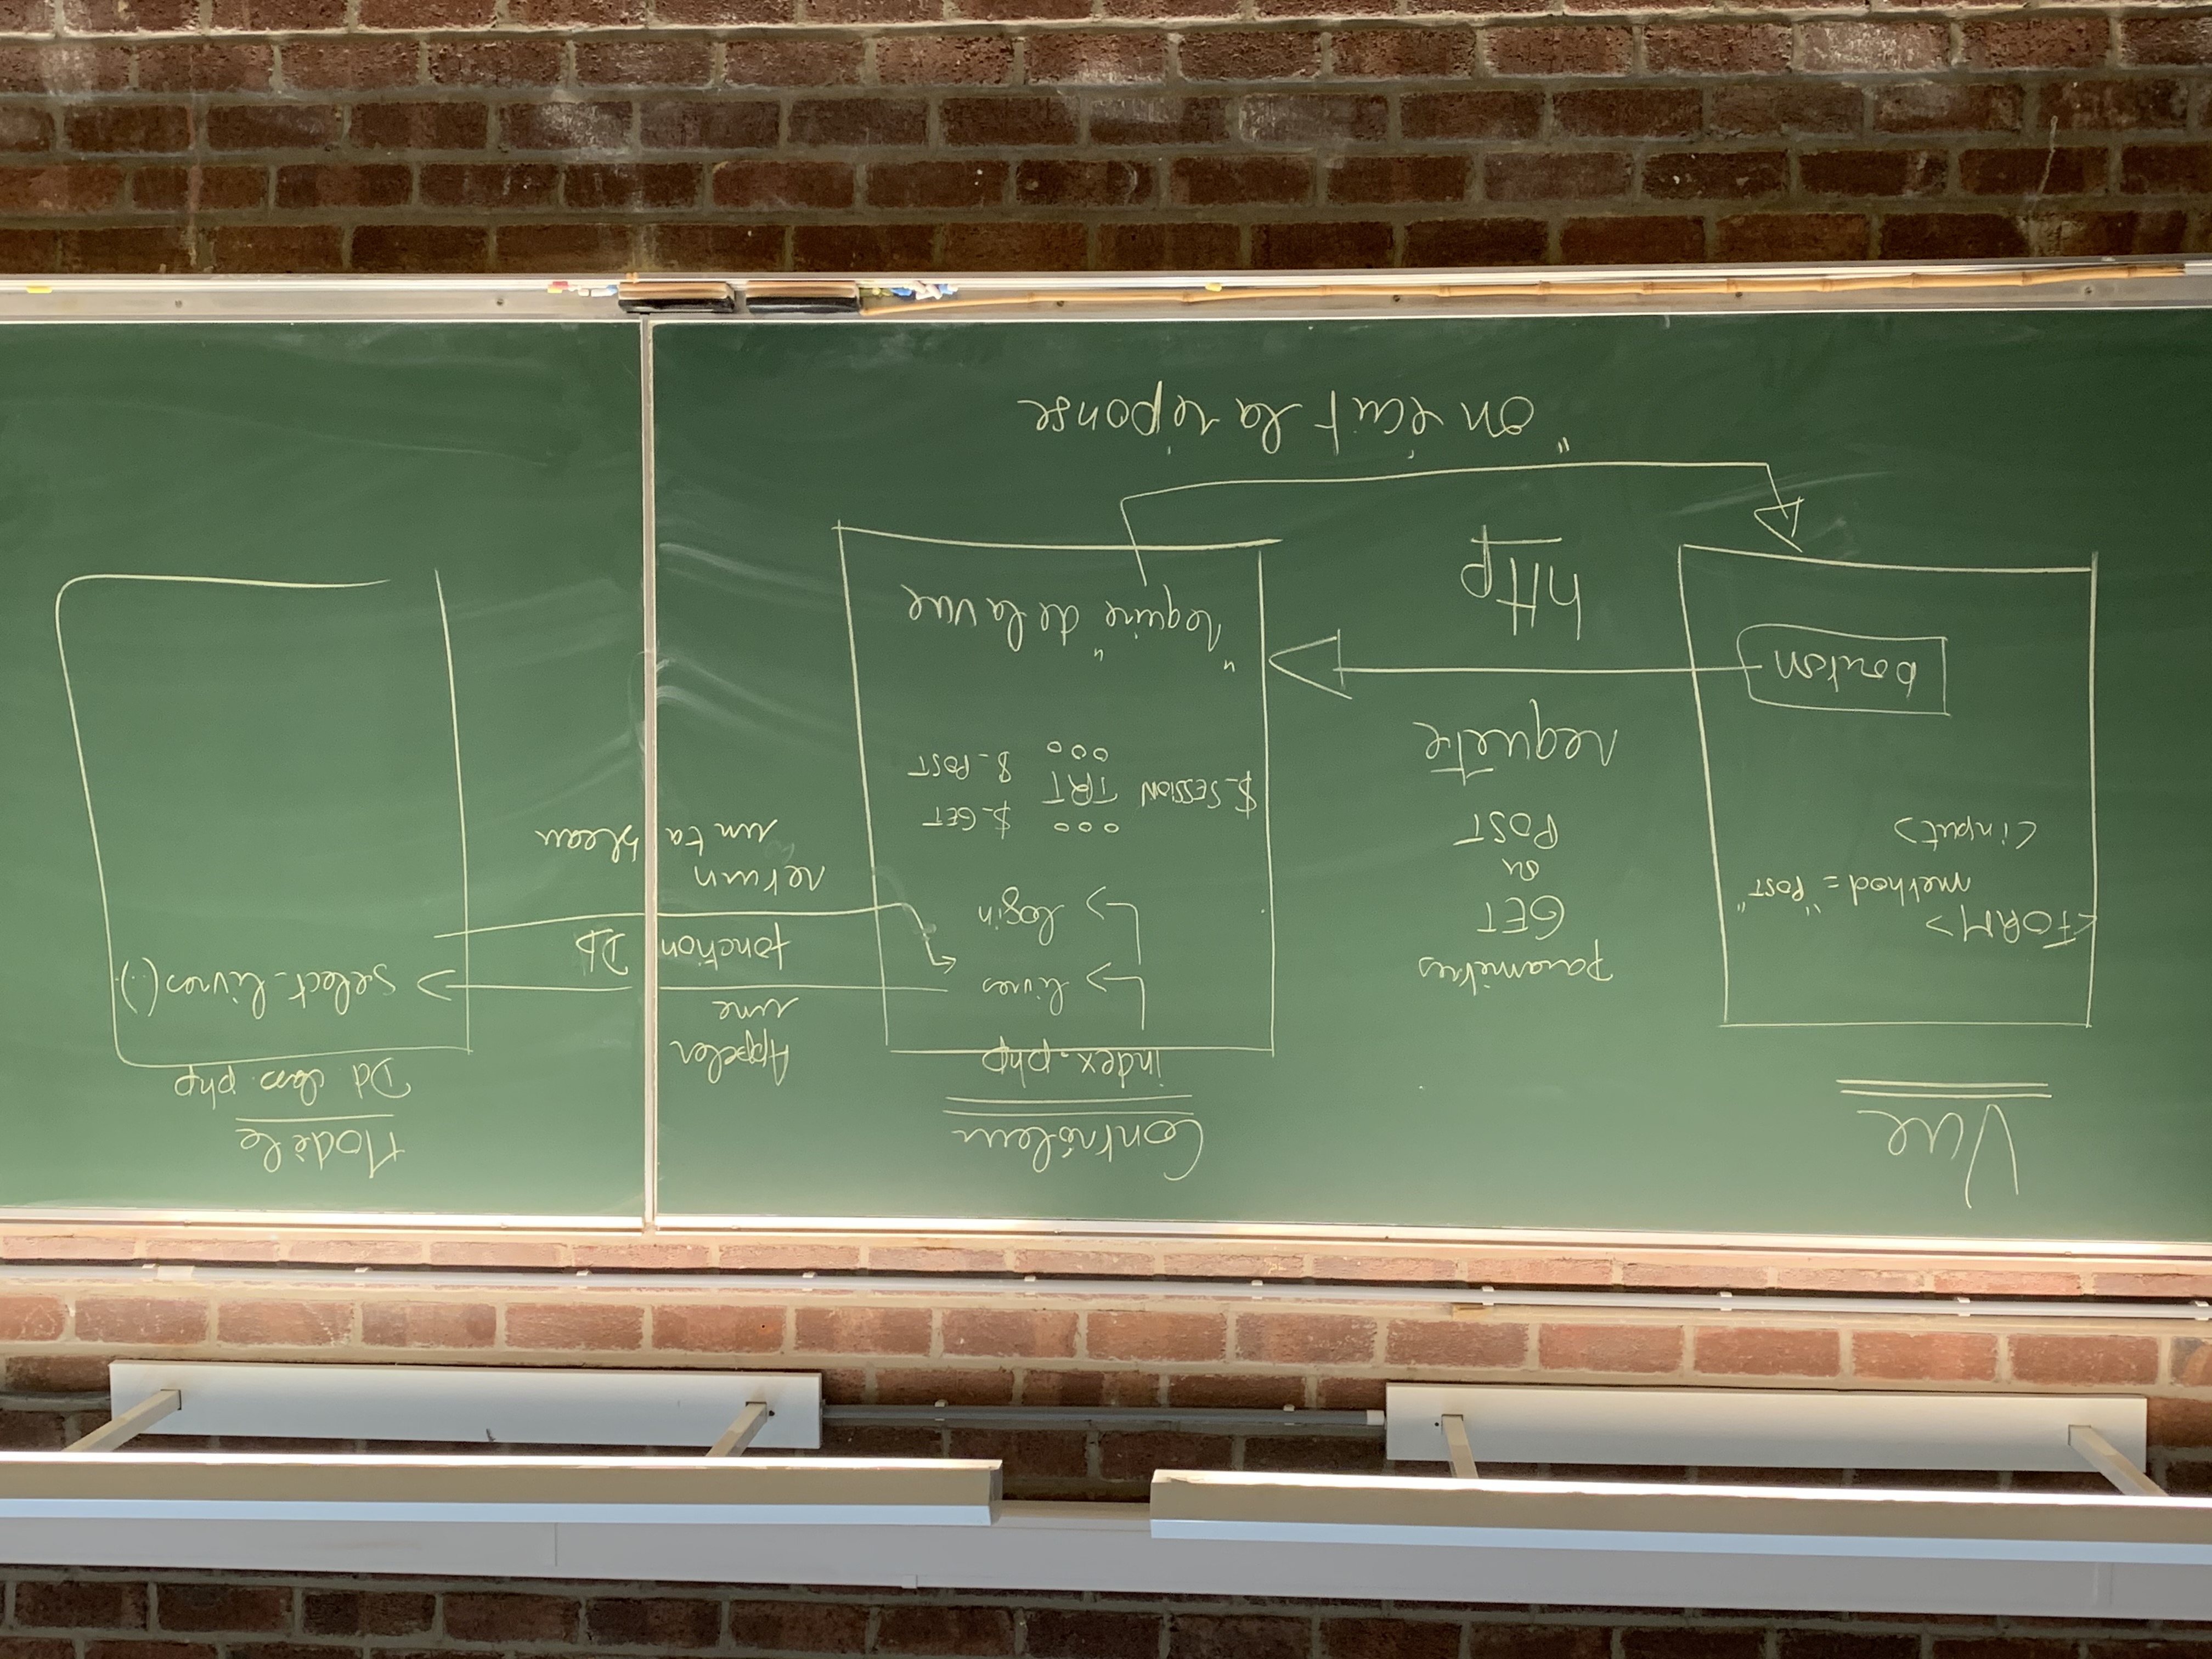 Vue
<FORM>
method = "POST"
<input>
bouton
paramètres
GET
ou
POST
requête
http
Contrôleur
index.php
livres
login
$_SESSION
TRT
$_GET
$_POST
"require" de la vue
"on écrit la réponse
Appeler
une
fonction Db
return
un tableau
Modèle
Dd class.php
select_livres(..)